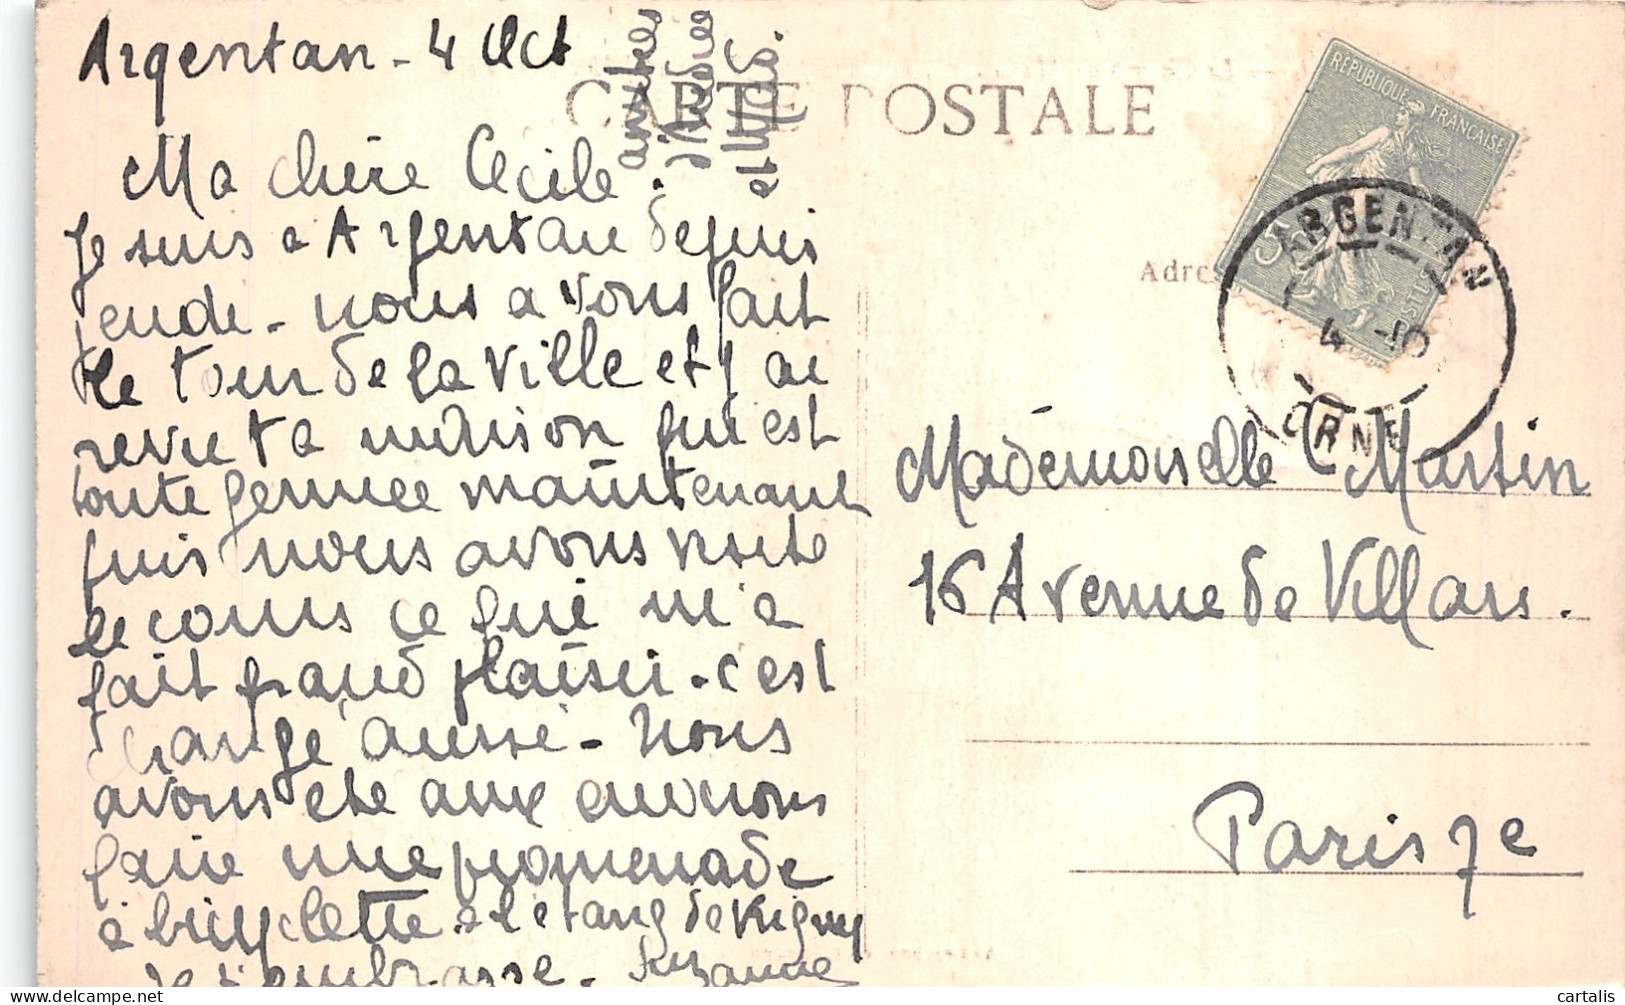 Argentan - 4 Oct
amitiés
d'Andrée
et
CARTE POSTALE
Ma chère Cécile.
Je suis à Argentan depuis
jeudi - nous avons fait
le tour de la ville et j'ai
revu ta maison qui est
toute fermée maintenant
puis nous avons visité
le cours ce qui m'a
fait grand plaisir - c'est
changé aussi - Nous
avons été aux environs
faire une promenade
à bicyclette à l'étang de
Je t'embrasse - Suzanne
REPUBLIQUE FRANÇAISE
POSTES
ARGENTAN
4 -10
ORNE
Mademoiselle C Martin
16 Avenue de Villars.
Paris 7e
cartalis